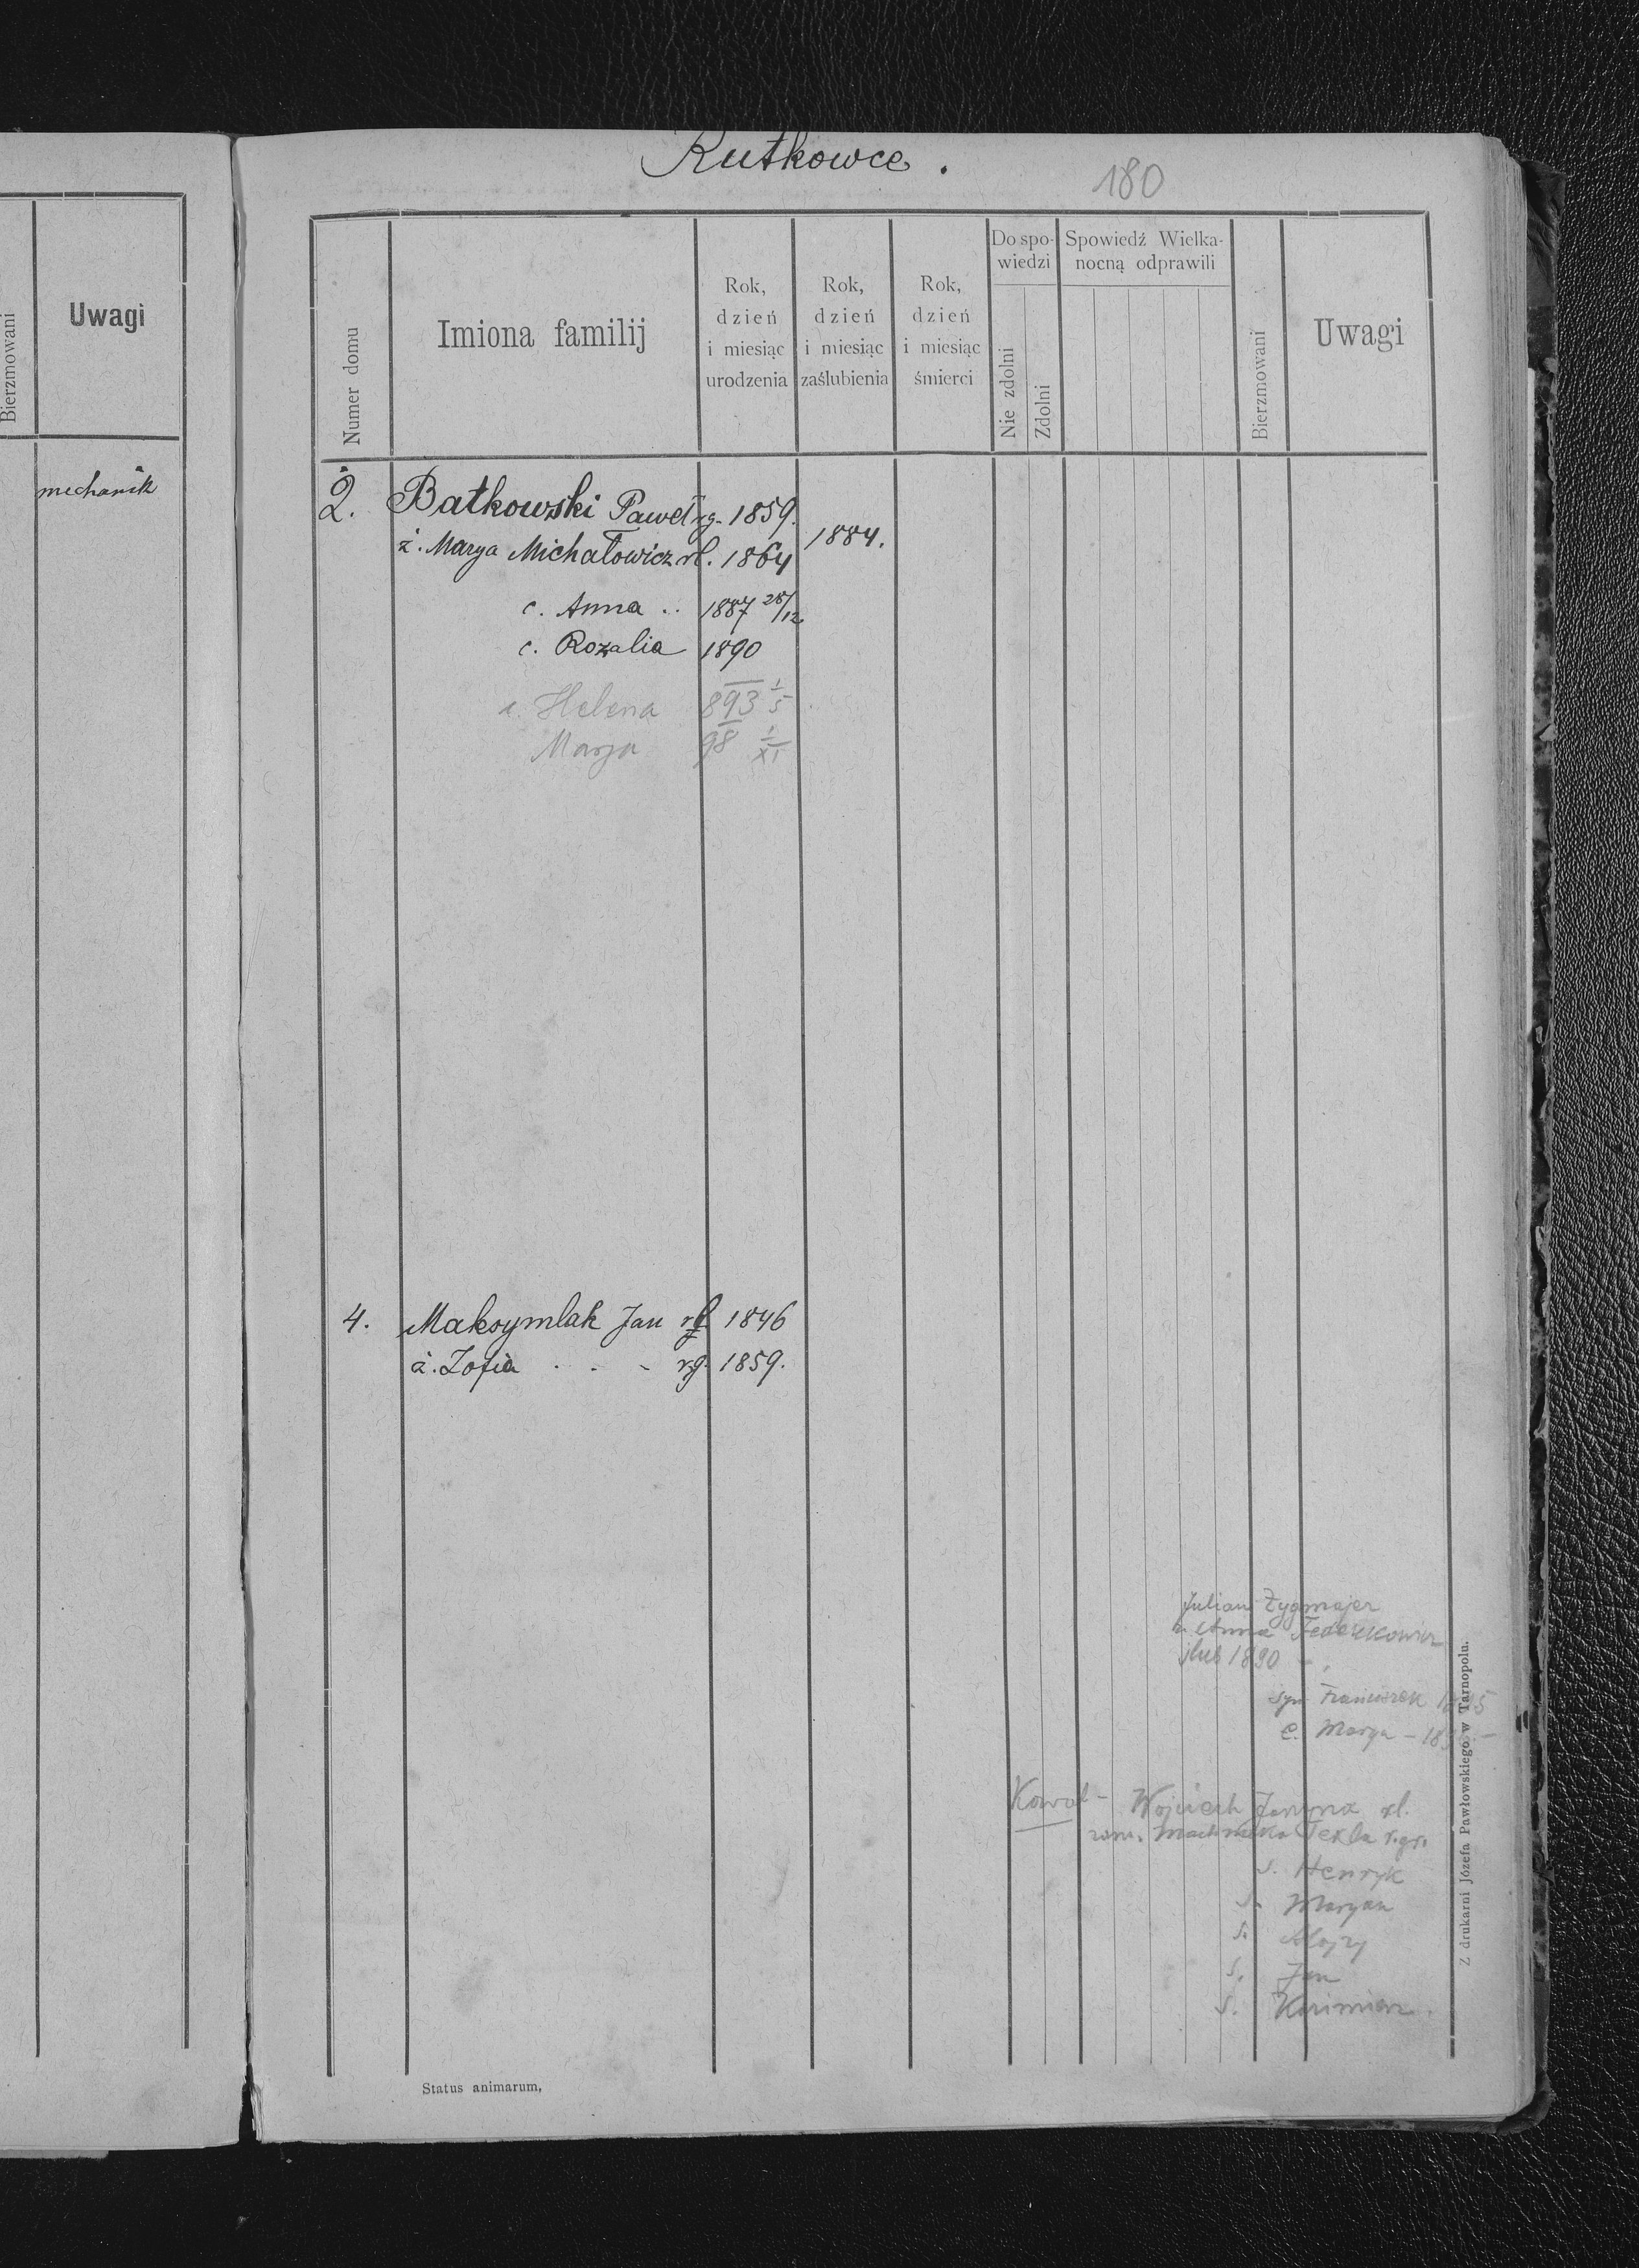 Bierzmowani
Uwagi
mechanik
Rutkowce.
180
Numer domu
Imiona familij
Rok, dzień i miesiąc urodzenia
Rok, dzień i miesiąc zaślubienia
Rok, dzień i miesiąc śmierci
Do spowiedzi
Nie zdolni
Zdolni
Spowiedź Wielkanocną odprawili
Bierzmowani
Uwagi
2. Batkowski Paweł rg. 1859.
ż. Marya Michałowicz rł. 1864 1884.
c. Anna .. 1887 28/12
c. Rozalia 1890
c. Helena 893 1/5
Marya 98 1/XI
4. Maksymlak Jan rł 1846
ż. Zofia . . - rg. 1859.
Julian Zygmajer
ż. Anna
ślub 1890
syn Franciszek
c. Marya
Kowal - Wojciech rł.
Tekla r.gr.
s. Henryk
s. Maryan
s. Alojzy
s. Jan
s. Kazimierz.
Z drukarni Józefa Pawłowskiego w Tarnopolu.
Status animarum,